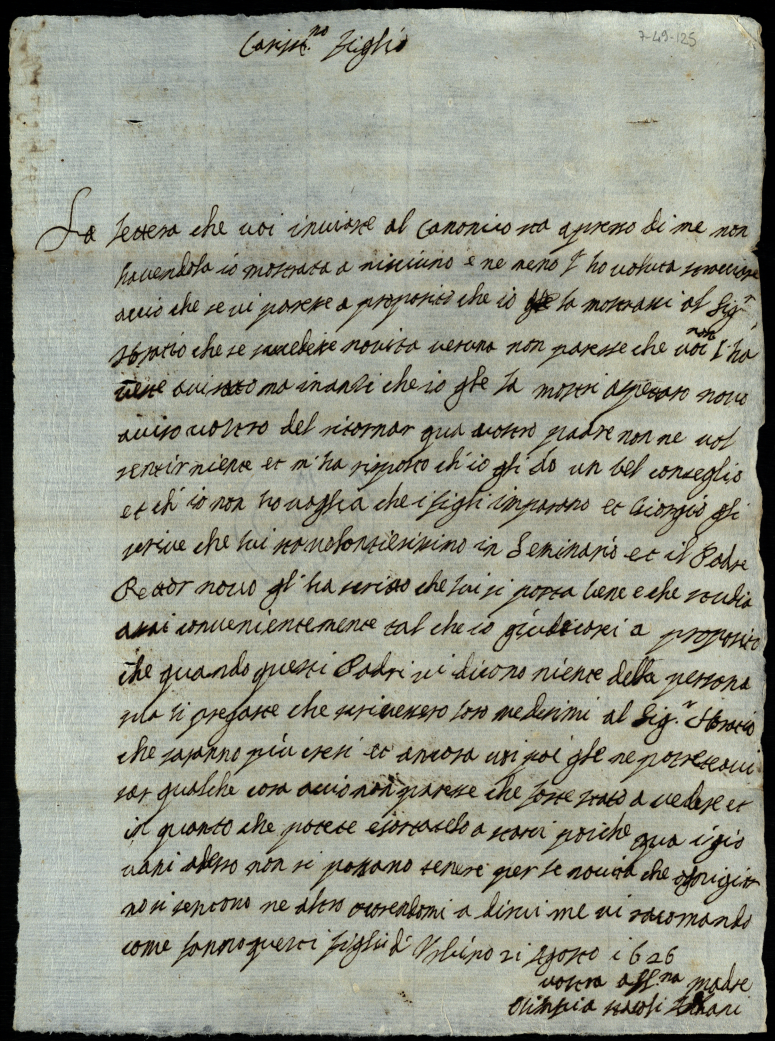 7-49-125
Cariss.mo figlio
La lettera che voi inviaste al Canonico sta apresso di me non
havendola io mostrata a nisciuno e ne meno l'ho voluta stracciare
acciò che se vi paresse a proposito che io gle la mostrassi al Sig.r
Horatio che se succedesse novita veruna non paresse che voi non l'ha
veste avisato ma inanzi che io gle la mostri aspettarò novo
aviso vostro del ritornar qua vostro padre non ne vol
sentir niente et m'ha risposto ch'io gli do un bel conseglio
et ch'io non ho voglia che i figli imparano et Giorgio gli
scrive che lui sta volontierissimo in Seminario et il Padre
Rettor novo gl'ha scritto che lui si porta bene e che studia
assai convenientemente tal che io giudicorei a proposito
che quando questi Padri vi dicono niente della persona
sua li pregaste che scrivessero loro medesimi al Sig.r Horatio
che saranno più cresi et ancora voi poi gle ne potrete avi
sar qualche cosa acciò non paresse che foste stato a vedere et
in quanto che potete esortatelo a starci poiche qua i gio
vani adesso non si possano tenere per le novità che ogni gior
no si sentono ne altro occorrendomi a dirvi me vi racomando
come fanno questi figli di Urbino 21 Agosto 1626
vostra aff.ma madre
Olimpia